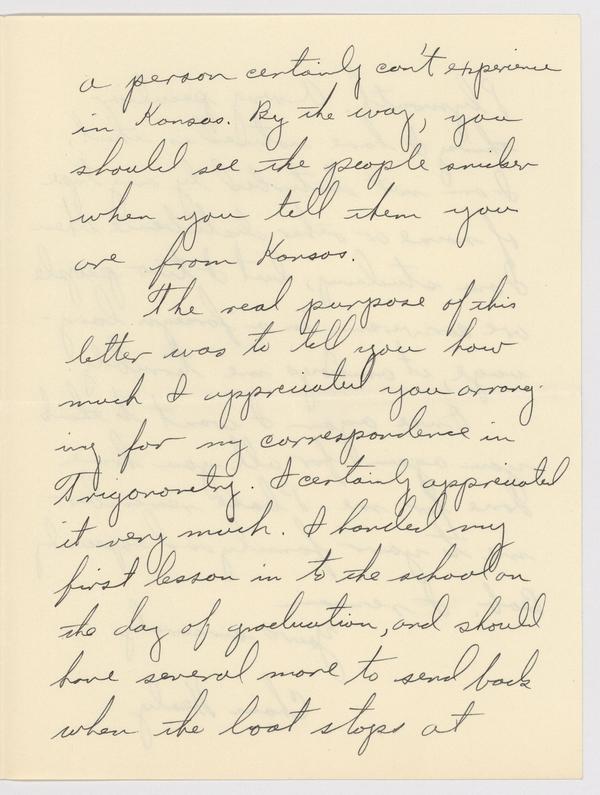 a person certainly can't experience
in Kansas. By the way, you
should see the people snicker
when you tell them you
are from Kansas.
The real purpose of this
letter was to tell you how
much I appreciated you arrang-
ing for my correspondence in
Trigonometry. I certainly appreciated
it very much. I handed my
first lesson in to the school on
the day of graduation, and should
have several more to send back
when the boat stops at